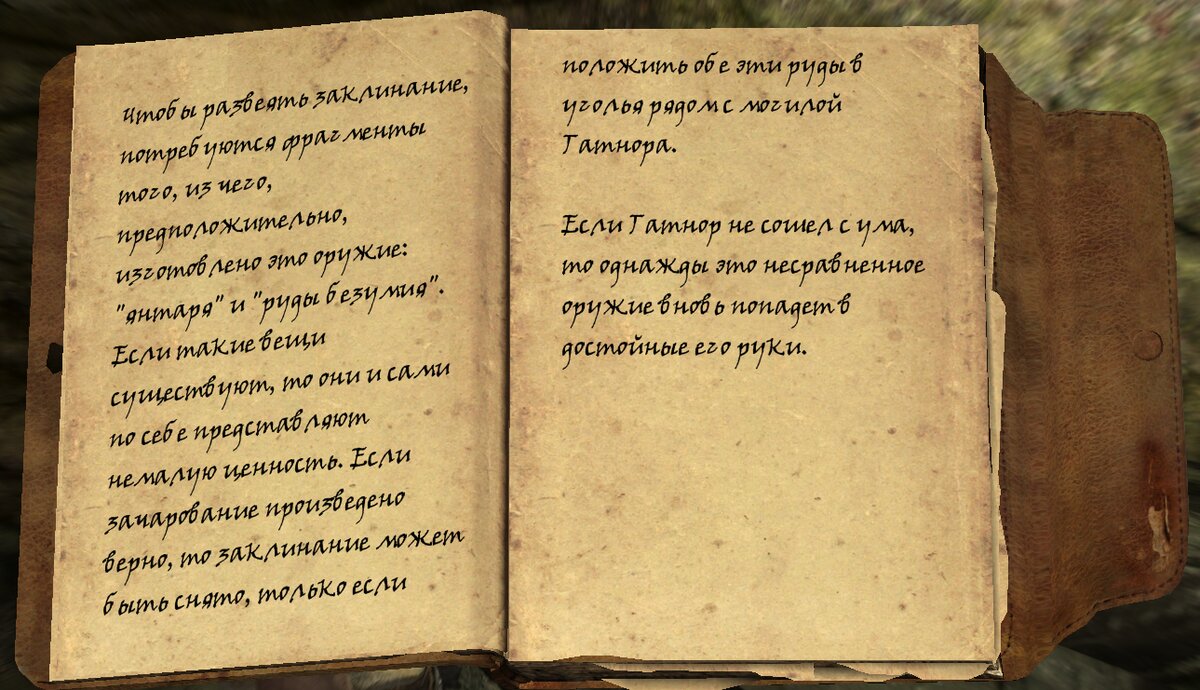 Чтобы развеять заклинание,
потребуются фрагменты
того, из чего,
предположительно,
изготовлено это оружие:
"янтаря" и "руды безумия".
Если такие вещи
существуют, то они и сами
по себе представляют
немалую ценность. Если
зачарование произведено
верно, то заклинание может
быть снято, только если
положить обе эти руды в
уголья рядом с могилой
Гатнора.
Если Гатнор не сошел с ума,
то однажды это несравненное
оружие вновь попадет в
достойные его руки.